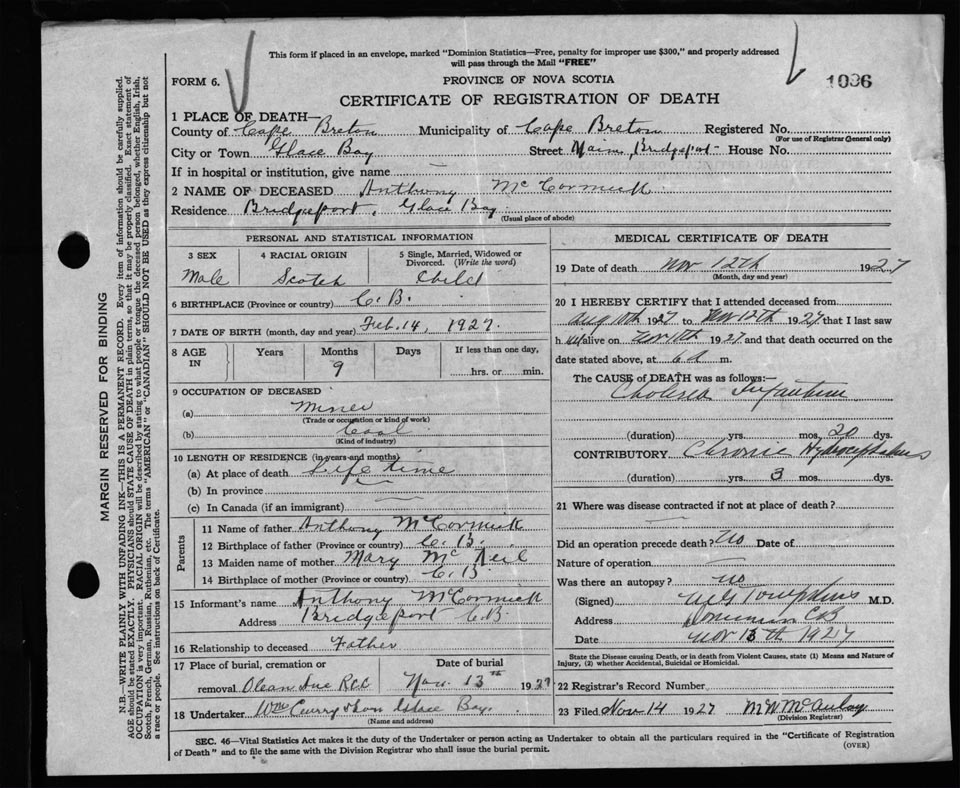 This form if placed in an envelope, marked "Dominion Statistics—Free, penalty for improper use $300," and properly addressed
will pass through the Mail "FREE"
FORM 6.
PROVINCE OF NOVA SCOTIA
1096
CERTIFICATE OF REGISTRATION OF DEATH
1 PLACE OF DEATH—
County of Cape Breton Municipality of Cape Breton Registered No.
(For use of Registrar General only)
City or Town Glace Bay Street Main, Bridgeport House No.
If in hospital or institution, give name —
2 NAME OF DECEASED Anthony McCormick
Residence Bridgeport, Glace Bay
(Usual place of abode)
PERSONAL AND STATISTICAL INFORMATION
3 SEX 4 RACIAL ORIGIN 5 Single, Married, Widowed or
Divorced. (Write the word)
Male Scotch Child
6 BIRTHPLACE (Province or country) C. B.
7 DATE OF BIRTH (month, day and year) Feb. 14, 1927.
8 AGE IN Years Months Days If less than one day,
9 hrs. or min.
9 OCCUPATION OF DECEASED
(a) Miner
(Trade or occupation or kind of work)
(b) Coal
(Kind of industry)
10 LENGTH OF RESIDENCE (in years and months)
(a) At place of death Life time
(b) In province —
(c) In Canada (if an immigrant) —
Parents
11 Name of father Anthony McCormick
12 Birthplace of father (Province or country) C. B.
13 Maiden name of mother Mary McNeil
14 Birthplace of mother (Province or country) C. B.
15 Informant's name Anthony McCormick
Address Bridgeport C.B.
16 Relationship to deceased Father
17 Place of burial, cremation or Date of burial
removal Nov. 13th 1927
18 Undertaker Wm Curry & Son Glace Bay.
(Name and address)
MEDICAL CERTIFICATE OF DEATH
19 Date of death Nov 12th 1927
(Month, day and year)
20 I HEREBY CERTIFY that I attended deceased from
Aug 10th 1927 to Nov 12th 1927 that I last saw
h im alive on Nov 1927 and that death occurred on the
date stated above, at 6 m.
The CAUSE of DEATH was as follows:—
Cholera Infantum
(duration) yrs. mos. 20 dys.
CONTRIBUTORY Chronic Hydrocephalus
(duration) yrs. 3 mos. dys.
21 Where was disease contracted if not at place of death?
—
Did an operation precede death? No Date of
Nature of operation —
Was there an autopsy? no
(Signed) Tompkins M.D.
Address Dominion CB
Date Nov 13th 1927
State the Disease causing Death, or in death from Violent Causes, state (1) Means and Nature of
Injury, (2) whether Accidental, Suicidal or Homicidal.
22 Registrar's Record Number
23 Filed Nov 14 1927 M W McAulay
(Division Registrar)
SEC. 46—Vital Statistics Act makes it the duty of the Undertaker or person acting as Undertaker to obtain all the particulars required in the "Certificate of Registration
of Death" and to file the same with the Division Registrar who shall issue the burial permit.
(OVER)
MARGIN RESERVED FOR BINDING
N.B.—WRITE PLAINLY WITH UNFADING INK—THIS IS A PERMANENT RECORD. Every item of information should be carefully supplied.
AGE should be stated EXACTLY. PHYSICIANS should STATE CAUSE OF DEATH in plain terms, so that it may be properly classified. Exact statement of
OCCUPATION is very important. RACIAL ORIGIN will be described by stating to what people or tongue the deceased person belonged, whether English, Irish,
Scotch, French, German, Russian, Ruthenian, etc. The terms "AMERICAN" or "CANADIAN" SHOULD NOT BE USED as they express citizenship but not
a race or people. See instructions on back of Certificate.